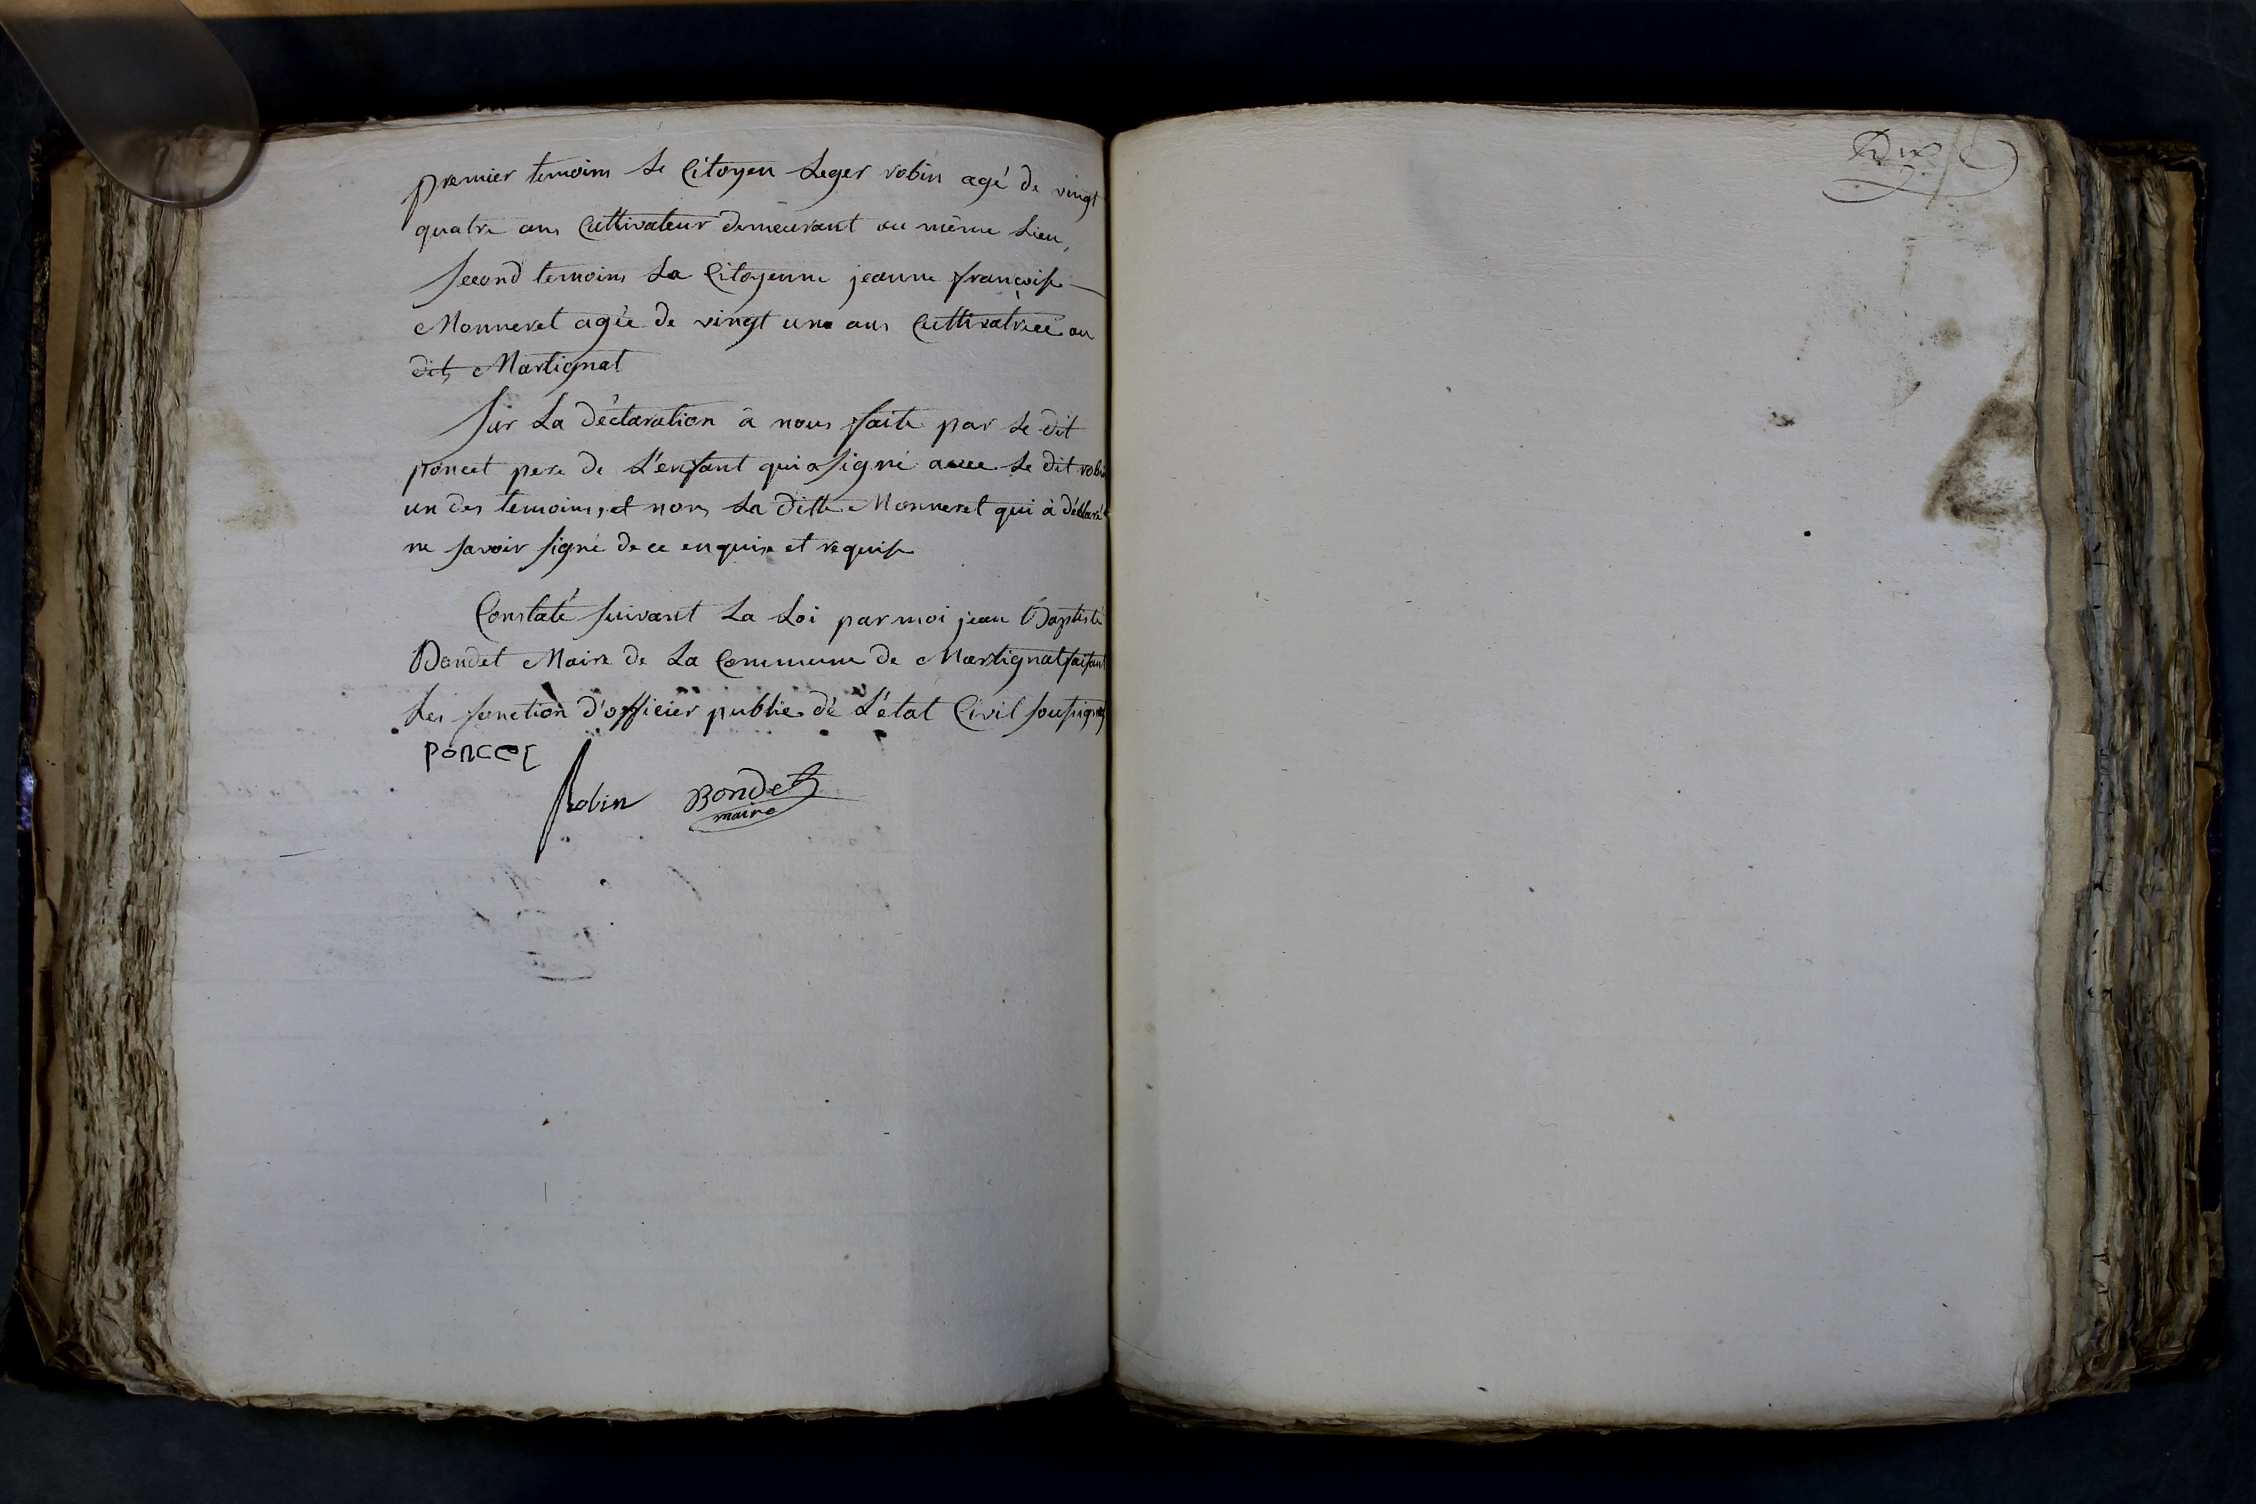 premier temoins Le Citoyen Leger robin agé de vingt
quatre ans Cultivateur demeurant au même Lieu,
Second temoins La Citoyenne jeanne françoise
Monneret agée de vingt une ans Cultivatrice au
dit Martignat
Sur La déclaration à nous faite par Le dit
poncet pere de L'enfant qui a signé avec Le dit robin
un des temoins, et non La ditte Monneret qui à déclaré
ne savoir signé de ce enquise et requise
Constaté suivant La Loi par moi jean Baptiste
Bondet Maire de La Commune de Martignat faisant
Les fonction d'officier public de L'état Civil soussigné
PONCET
Robin Bondet
maire
Dix